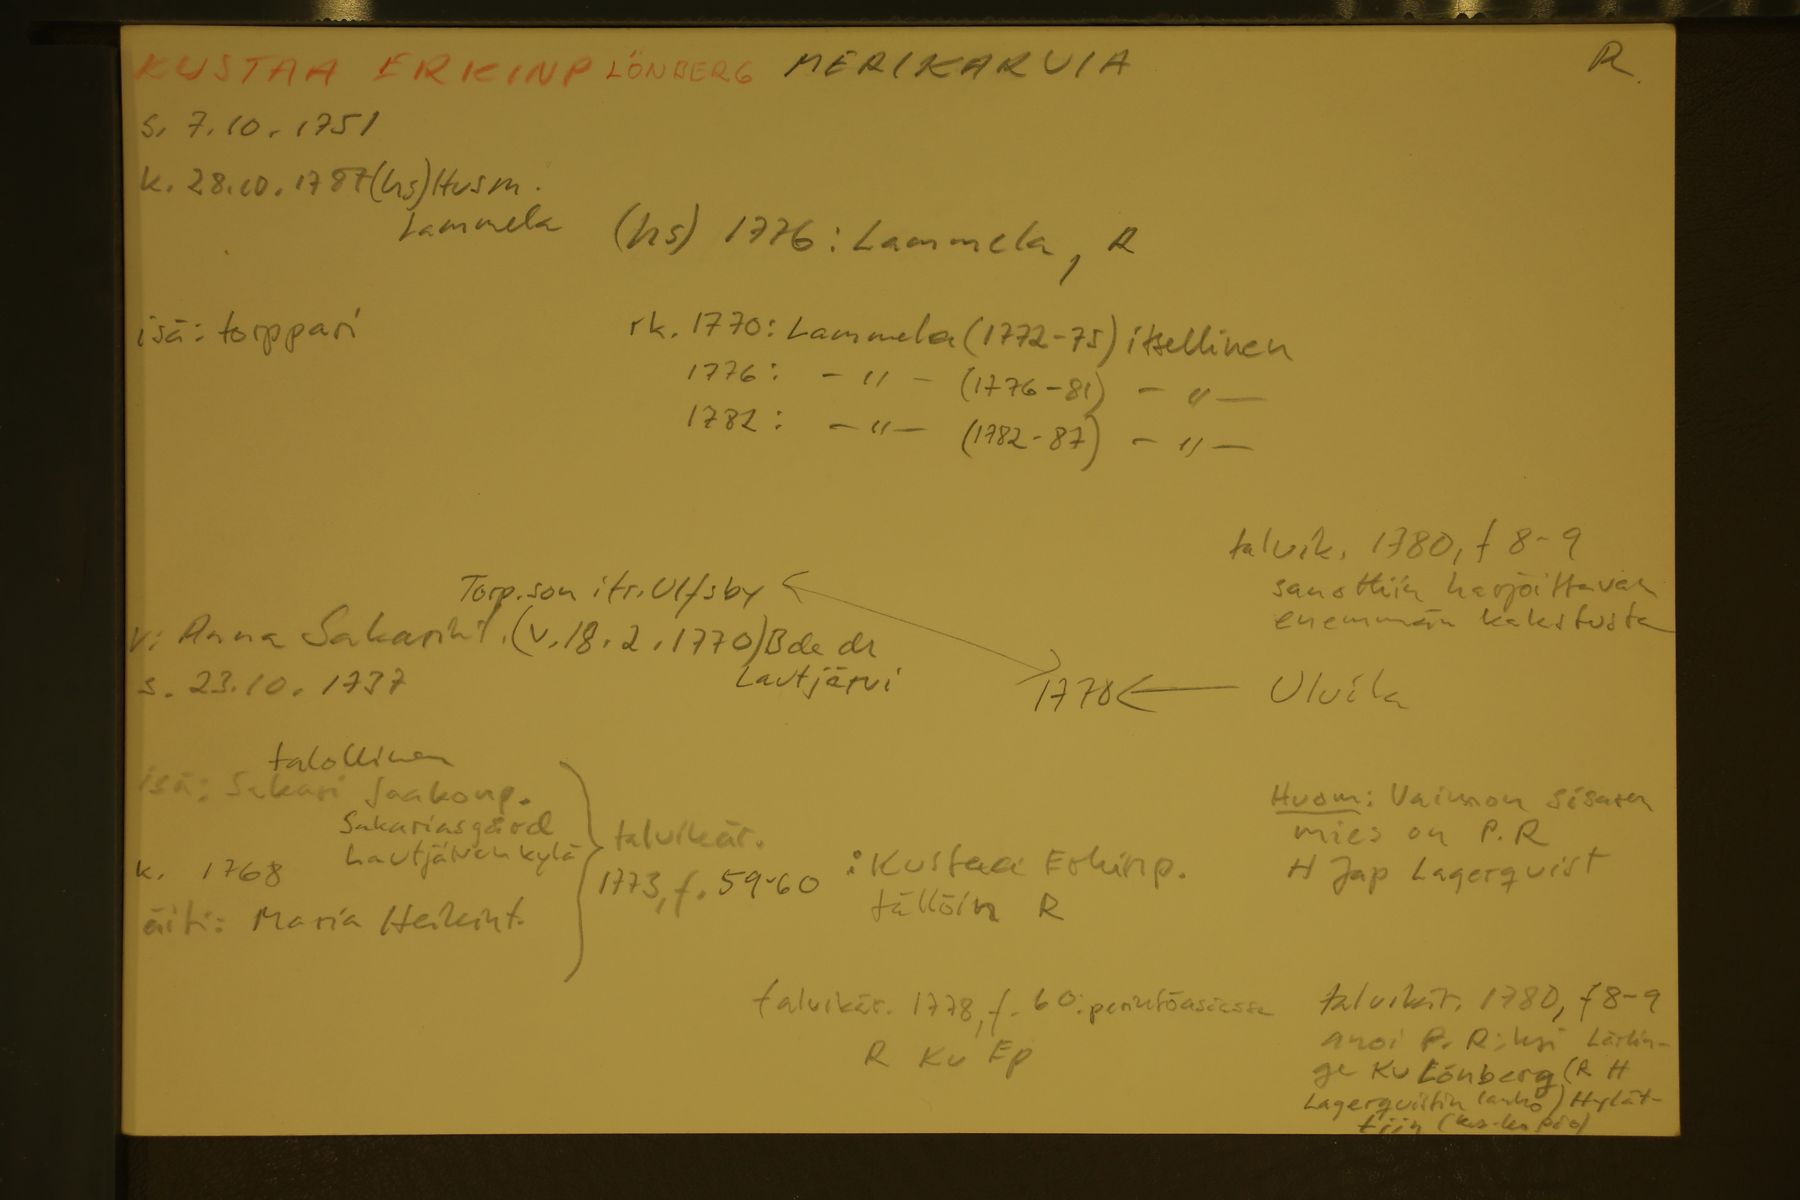 KUSTAA ERKINP LÖNBERG MERIKARVIA R.
s. 7.10.1751
k. 28.10.1787 (hs) Husm.
Lammela
(hs) 1776: Lammela, R
isä: torppari
rk. 1770: Lammela (1772-75) itsellinen
1776: -"- (1776-81) -"-
1782: -"- (1782-87) -"-
talvik. 1780, f 8-9
sanottiin harjoittavan
enemmän kalastusta
Torp.son itr. Ulfsby
v: Anna Sakarint. (v. 18.2.1770) Bde dr
Lautjärvi
s. 23.10.1737
1778 Ulvila
talollinen
isä: Sakari Jaakonp.
Sakariasgård
Lautjärven kylä
k. 1768
äiti: Maria Heikint.
talvikär.
1773, f. 59-60
: Kustaa Erkinp.
tällöin R
Huom: Vaimon sisaren
mies on P.R
H Jap Lagerquist
talvikär. 1778, f. 60: perintöasiassa
R Ku Ep
talvikär. 1780, f 8-9
anoi P. R:ksi Lärlin-
ge Ku Lönberg (R H
Lagerquistin lanko) Hylät-
tiin